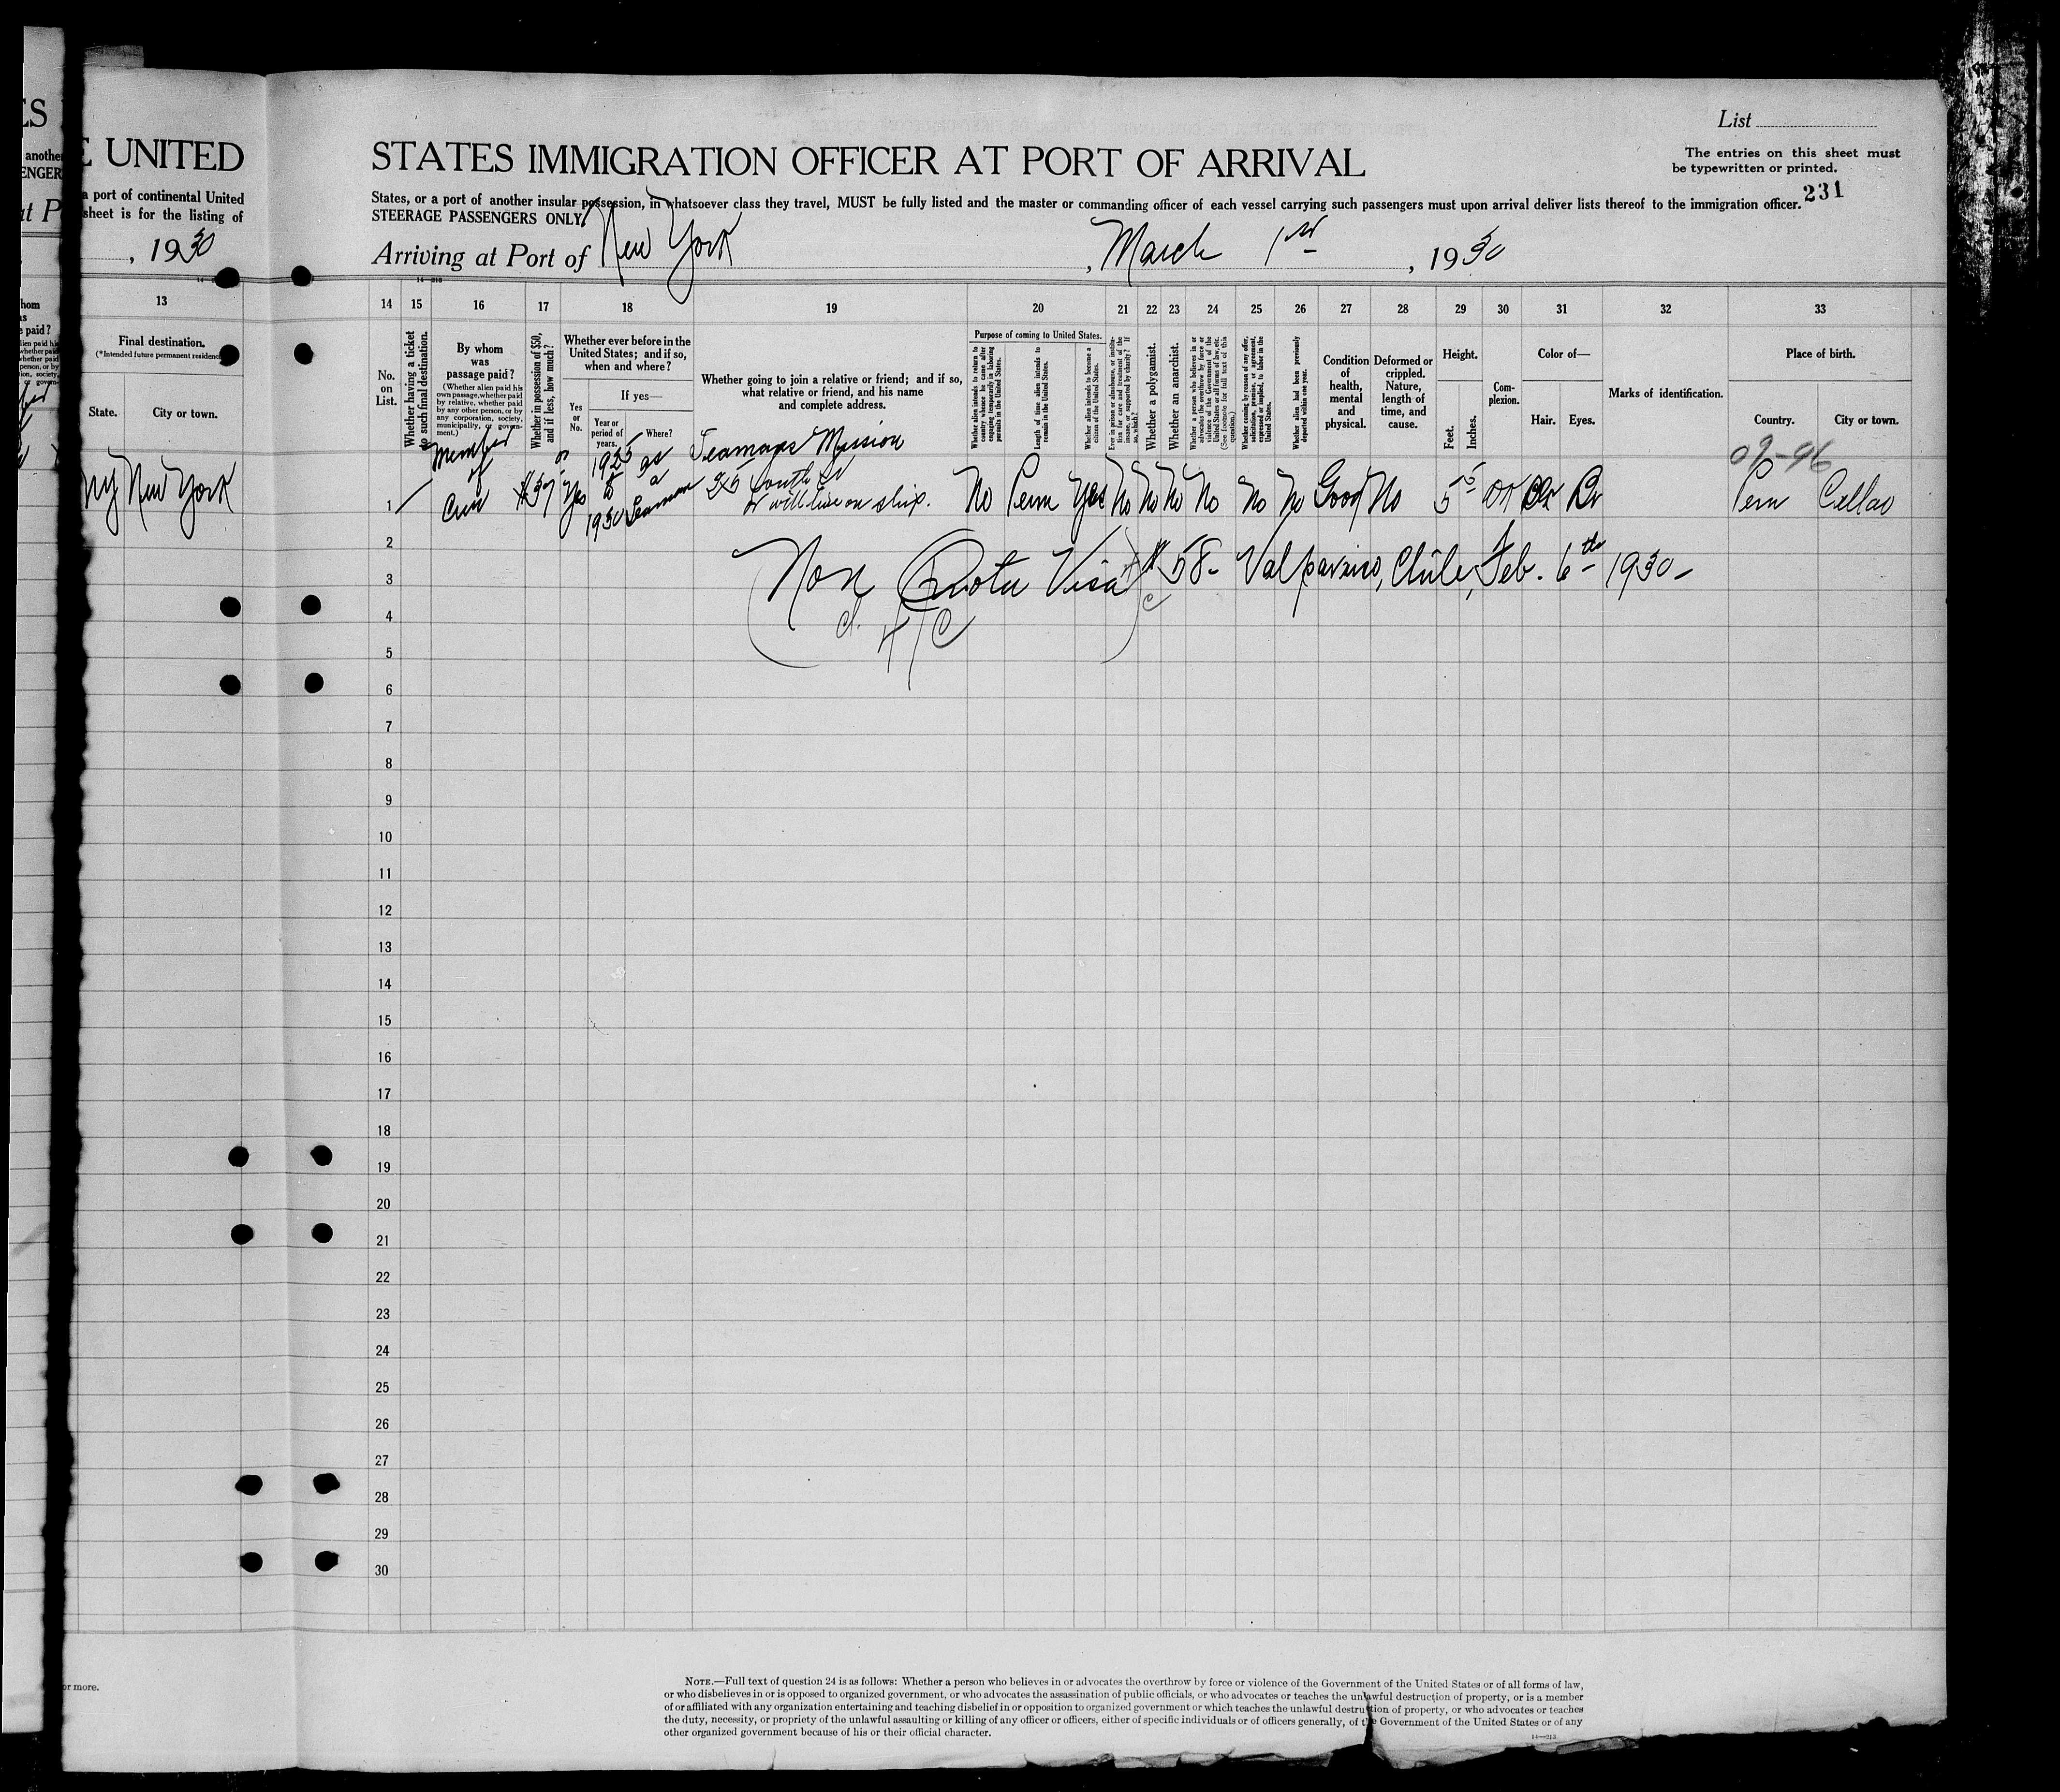 ES
E UNITED
STATES IMMIGRATION OFFICER AT PORT OF ARRIVAL
List
The entries on this sheet must
be typewritten or printed.
231
another
ENGER
a port of continental United
sheet is for the listing of
States, or a port of another insular possession, in whatsoever class they travel, MUST be fully listed and the master or commanding officer of each vessel carrying such passengers must upon arrival deliver lists thereof to the immigration officer.
STEERAGE PASSENGERS ONLY
at P
, 1930
Arriving at Port of New York, March 1st, 1930
13 14 15 16 17 18 19 20 21 22 23 24 25 26 27 28 29 30 31 32 33
Final destination.
(*Intended future permanent residence
State.
City or town.
No.
on
List.
Whether having a ticket
to such final destination.
By whom
was
passage paid?
(Whether alien paid his
own passage, whether paid
by relative, whether paid
by any other person, or by
any corporation, society,
municipality, or govern-
ment.)
Whether in possession of $50,
and if less, how much?
Whether ever before in the
United States; and if so,
when and where?
Yes
or
No.
If yes—
Year or
period of
years.
Where?
Whether going to join a relative or friend; and if so,
what relative or friend, and his name
and complete address.
Purpose of coming to United States.
Whether alien intends to return to
country whence he came after
engaging temporarily in laboring
pursuits in the United States.
Length of time alien intends to
remain in the United States.
Whether alien intends to become a
citizen of the United States.
Ever in prison or almshouse, or institu-
tion for care and treatment of the
insane, or supported by charity? If
so, which?
Whether a polygamist.
Whether an anarchist.
Whether a person who believes in or
advocates the overthrow by force or
violence of the Government of the
United States or all forms of law, etc.
(See footnote for full text of this
question.)
Whether coming by reason of any offer,
solicitation, promise, or agreement,
expressed or implied, to labor in the
United States.
Whether alien had been previously
deported within one year.
Condition
of
health,
mental
and
physical.
Deformed or
crippled.
Nature,
length of
time, and
cause.
Height.
Feet.
Inches.
Com-
plexion.
Color of—
Hair.
Eyes.
Marks of identification.
Place of birth.
Country.
City or town.
09-96
NY New York
1 Member of Crew $37 Yes 1925 to 1930 as a Seaman
Seamans Mission
25 South St
or will live on ship.
No Perm Yes No No No No No No Good No 5 5 Dk Br Peru Callao
2
(Non Quota Visa) # 58- Valparaiso, Chile, Feb. 6th 1930-
3
4
5
6
7
8
9
10
11
12
13
14
15
16
17
18
19
20
21
22
23
24
25
26
27
28
29
30
or more.
NOTE.—Full text of question 24 is as follows: Whether a person who believes in or advocates the overthrow by force or violence of the Government of the United States or of all forms of law,
or who disbelieves in or is opposed to organized government, or who advocates the assassination of public officials, or who advocates or teaches the unlawful destruction of property, or is a member
of or affiliated with any organization entertaining and teaching disbelief in or opposition to organized government or which teaches the unlawful destruction of property, or who advocates or teaches
the duty, necessity, or propriety of the unlawful assaulting or killing of any officer or officers, either of specific individuals or of officers generally, of the Government of the United States or of any
other organized government because of his or their official character.
14—213